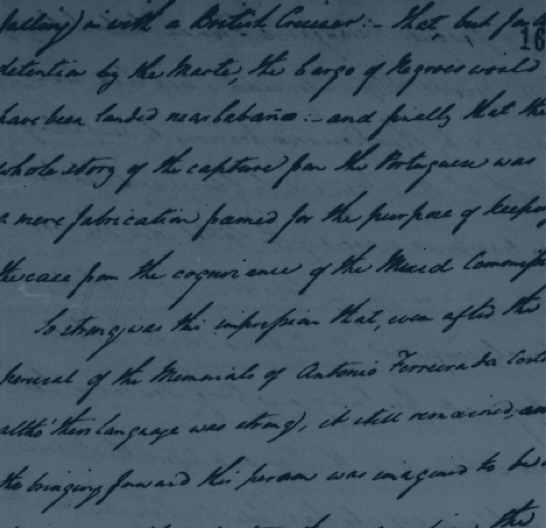 falling) in with a British Cruizer:- that, but for the
16
detention by the Marte, the Cargo of Negroes would
have been landed near Cabañas:- and finally that the
whole story of the capture from the Portuguese was
a mere fabrication framed for the purpose of keeping
the case from the cognizance of the Mixed Commission
So strong was this impression that, even after the
perusal of the Memorials of Antonio Ferreira da Costa
altho' their language was strong, it still remained, and
the bringing forward this person was imagined to be
the